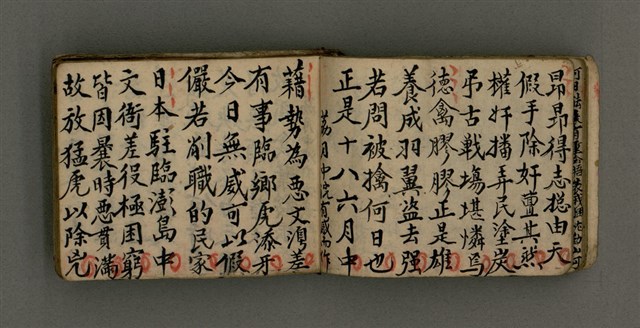 昂昂得志總由天
假手除奸亶其然
權奸播弄民塗炭
弔古戰場堪憐焉
德禽膠膠正是雄
養成羽翼盜去强
若問被擒何日也
正是十八六月中
藉勢為悪文灣差
有事臨鄉虎添牙
今日無威可以假
儼若削職的民家
日本駐臨澎島中
文衙差役極困窮
皆因曩時悪貫滿
故放猛虎以除兇